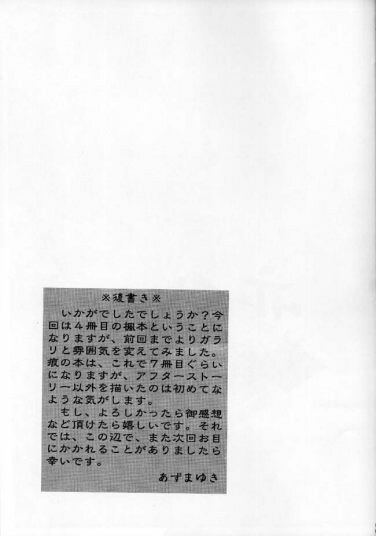 ※後書き※
いかがでしたでしょうか？今
回は４冊目の楓本ということに
なりますが、前回までよりガラ
リと雰囲気を変えてみました。
痕の本は、これで７冊目ぐらい
になりますが、アフターストー
リー以外を描いたのは初めてな
ような気がします。
もし、よろしかったら御感想
など頂けたら嬉しいです。それ
では、この辺で、また次回お目
にかかれることがありましたら
幸いです。
あずまゆき